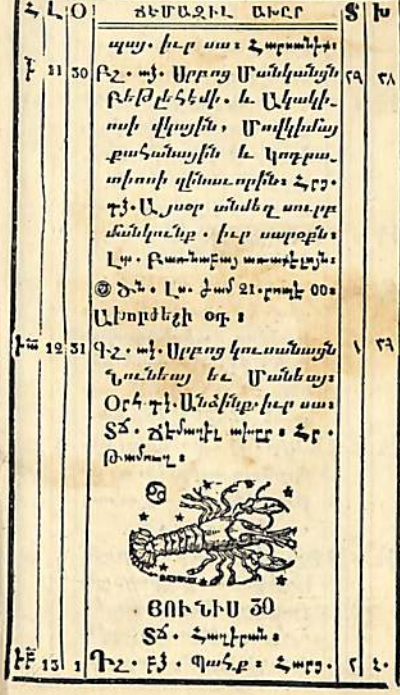 Հ Լ Օ ՃԷՄԱԶԻԼ ԱԽԸՐ Տ Խ
պայ. իւր սա։ Հարսանիք։
Ժ 11 30 ԲՇ. ակ. Սրբոց Մանկանցն ԻԹ ԻԸ
Բեթլեհէմի. և Ակակի֊
ոսի վկային, Մովկիմայ
քահանային և Կոդրա֊
տիոսի զինաւորին։ Հրց.
դձ. Այսօր անմեղ սուրբ
մանկունք. իւր սարօքն։
Լս. Բառնաբայ առաքելոյն։
Ծն. Լս. ժամ 21. րոպէ 00։
Ախորժելի օդ։
ԺԱ 12 31 ԳՇ. ակ. Սրբոց կուսանացն Ա ԻԹ
Նունեայ եւ Մանեայ։
Օրհ դկ. Անձինք. իւր սա։
ՏՃ. Ճէմազիլ ախըր։ Հր.
Թամուզ։
ՅՈՒՆԻՍ 30
ՏՃ. Հազիրան։
ԺԲ 13 1 ԴՇ. բձ. Պահք։ Հարց. Բ Լ.